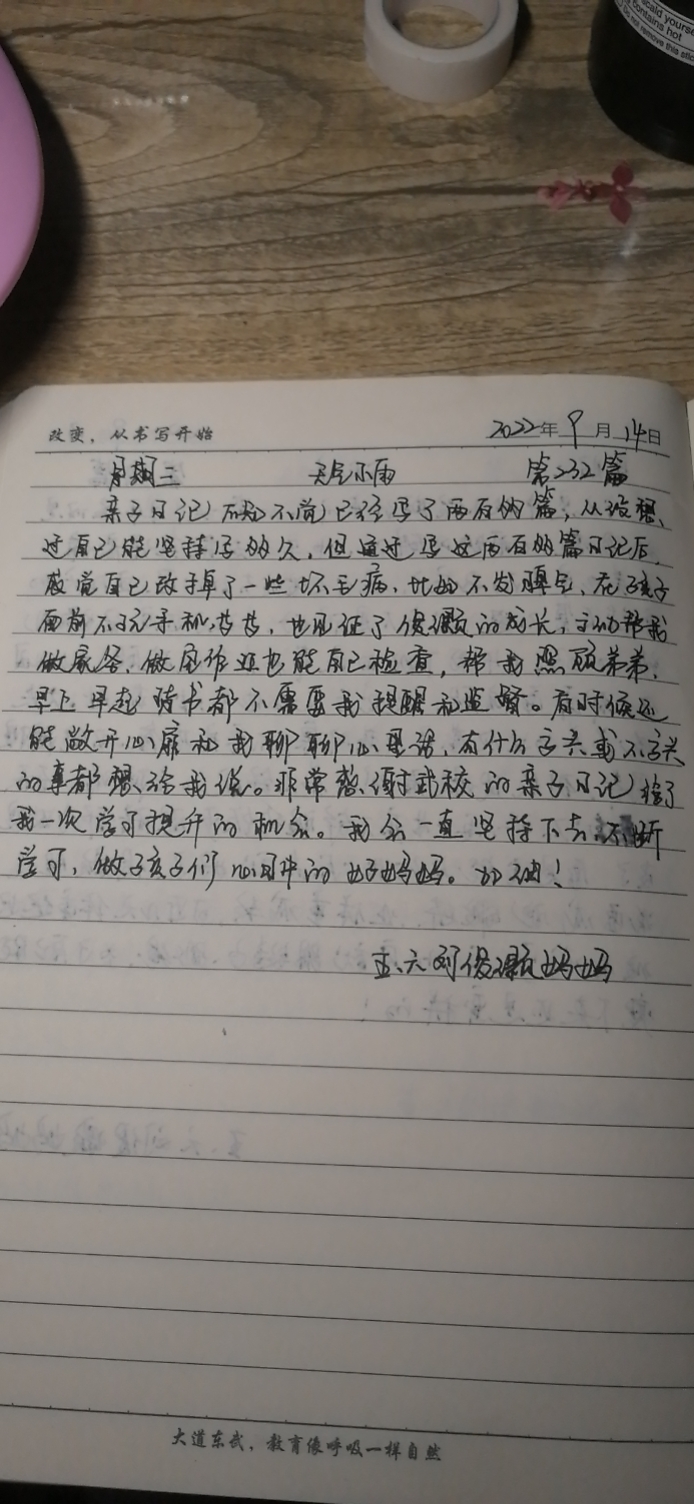 scald yourse
contains hot
Do not remove this stic
改变，从书写开始
2022年9月14日
星期三 天气小雨 第232篇
亲子日记不知不觉已经写了两百的篇，从没想
过自已能坚持写的久，但通过写这两百的篇日记后，
感觉自已改掉了一些坏毛病，比如不发脾气，在孩子
面前不玩手机等等，也见证了俊颢的成长，主动帮我
做家务，做完作业也能自已检查，帮我照顾弟弟，
早上早起读书都不需要我提醒和监督。有时候还
能敞开心扉和我聊聊心里话，有什么高兴或不高兴
的事都想给我说。非常感谢武校的亲子日记给了
我一次学习提升的机会。我会一直坚持下去，不断
学习，做孩子们心目中的好妈妈。加油！
五、六 刘俊颢妈妈
大道东武，教育像呼吸一样自然